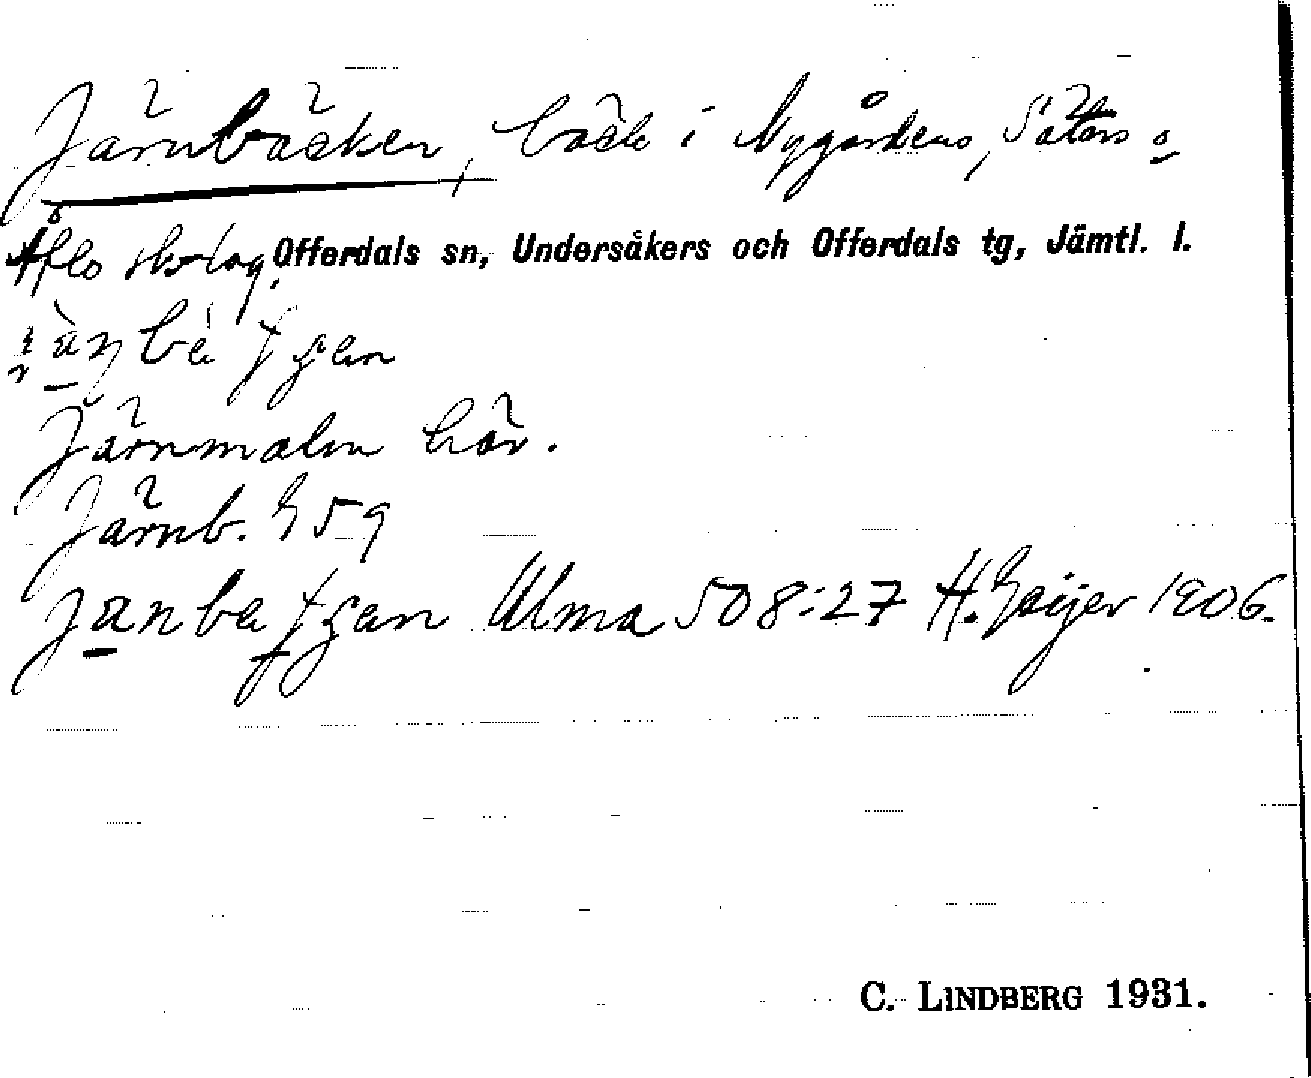 Järnbäcken, bäck i Nygårdens, Säters o
Åflo skolag, Offerdals sn, Undersåkers och Offerdals tg, Jämtl. l.
Järnmalm här.
Järnb. G 59
Ulma 508:27 H. Geijer 1906.
C. LINDBERG 1931.